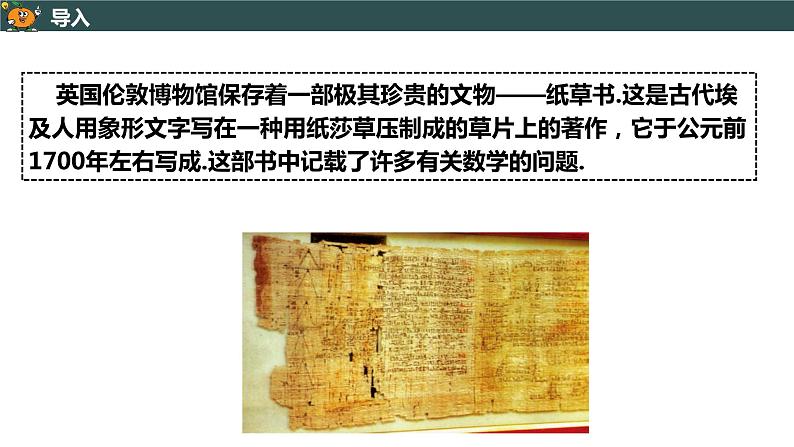 导入
英国伦敦博物馆保存着一部极其珍贵的文物——纸草书.这是古代埃
及人用象形文字写在一种用纸莎草压制成的草片上的著作，它于公元前
1700年左右写成.这部书中记载了许多有关数学的问题.